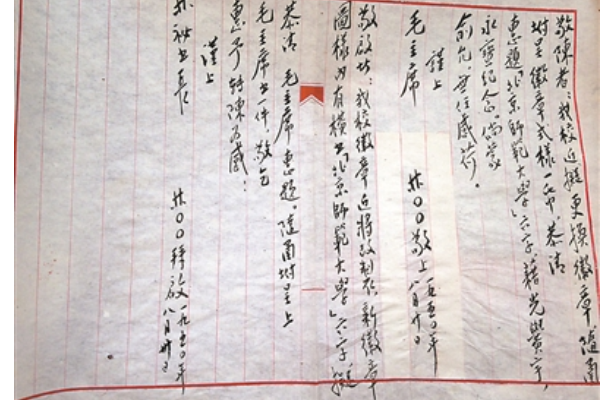 敬陳者：我校近擬更換徽章隨函
附呈徽章式樣一幀恭請
惠題「北京師範大學」六字藉光黌宇，
永寶紀念。倘蒙
俞允，無任感荷。
謹上
毛主席
林〇〇敬上 一九五〇年八月廿日
敬啟者：我校徽章近將改製，新徽章
圖樣內有橫書「北京師範大學」六字擬
恭請 毛主席惠題。隨函附呈上
毛主席書一件，敬乞
惠予轉陳為感：
謹上
林祕書長
林〇〇拜啟 一九五〇年八月廿日